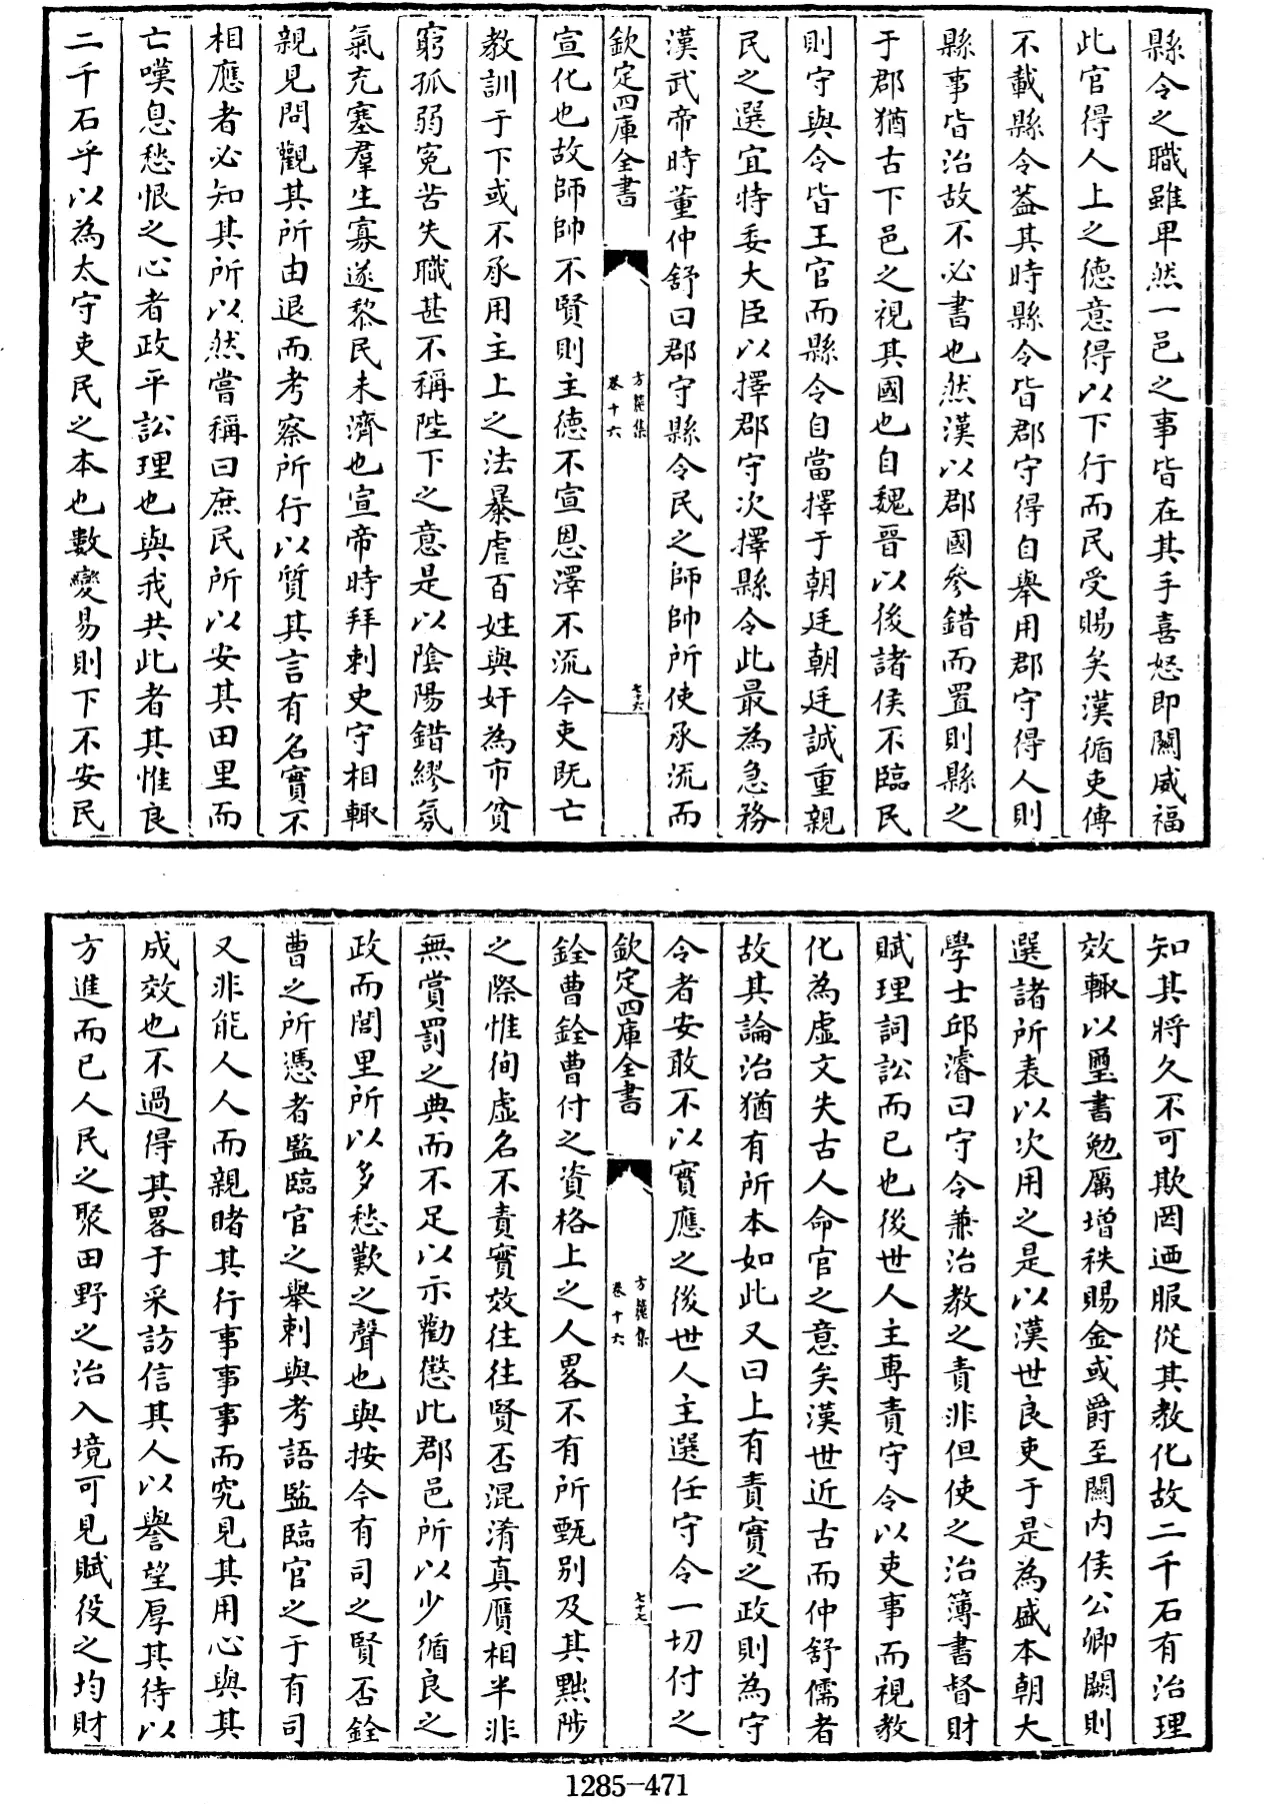 縣令之職雖卑然一邑之事皆在其手喜怒即關威福
此官得人上之德意得以下行而民受賜矣漢循吏傳
不載縣令葢其時縣令皆郡守得自舉用郡守得人則
縣事皆治故不必書也然漢以郡國參錯而置則縣之
于郡猶古下邑之視其國也自魏晉以後諸侯不臨民
則守與令皆王官而縣令自當擇于朝廷朝廷誠重親
民之選宜特委大臣以擇郡守次擇縣令此最為急務
漢武帝時董仲舒曰郡守縣令民之師帥所使承流而
欽定四庫全書
方麓集
卷十六
七十六
宣化也故師帥不賢則主德不宣恩澤不流今吏既亡
教訓于下或不承用主上之法暴虐百姓與奸為市貧
窮孤弱寃苦失職甚不稱陛下之意是以陰陽錯繆氛
氣充塞羣生寡遂黎民未濟也宣帝時拜刺史守相輙
親見問觀其所由退而考察所行以質其言有名實不
相應者必知其所以然嘗稱曰庶民所以安其田里而
亡嘆息愁恨之心者政平訟理也與我共此者其惟良
二千石乎以為太守吏民之本也數變易則下不安民
知其將久不可欺罔迺服從其教化故二千石有治理
效輙以璽書勉厲增秩賜金或爵至關內侯公卿闕則
選諸所表以次用之是以漢世良吏于是為盛本朝大
學士邱濬曰守令兼治教之責非但使之治簿書督財
賦理詞訟而已也後世人主專責守令以吏事而視教
化為虛文失古人命官之意矣漢世近古而仲舒儒者
故其論治猶有所本如此又曰上有責實之政則為守
令者安敢不以實應之後世人主選任守令一切付之
欽定四庫全書
方麓集
卷十六
七十七
銓曹銓曹付之資格上之人畧不有所甄别及其黜陟
之際惟徇虛名不責實效往往賢否混淆真贋相半非
無賞罰之典而不足以示勸懲此郡邑所以少循良之
政而閭里所以多愁歎之聲也與按今有司之賢否銓
曹之所憑者監臨官之舉刺與考語監臨官之于有司
又非能人人而親睹其行事事事而究見其用心與其
成效也不過得其畧于采訪信其人以譽望厚其待以
方進而已人民之聚田野之治入境可見賦役之均財
1285-471